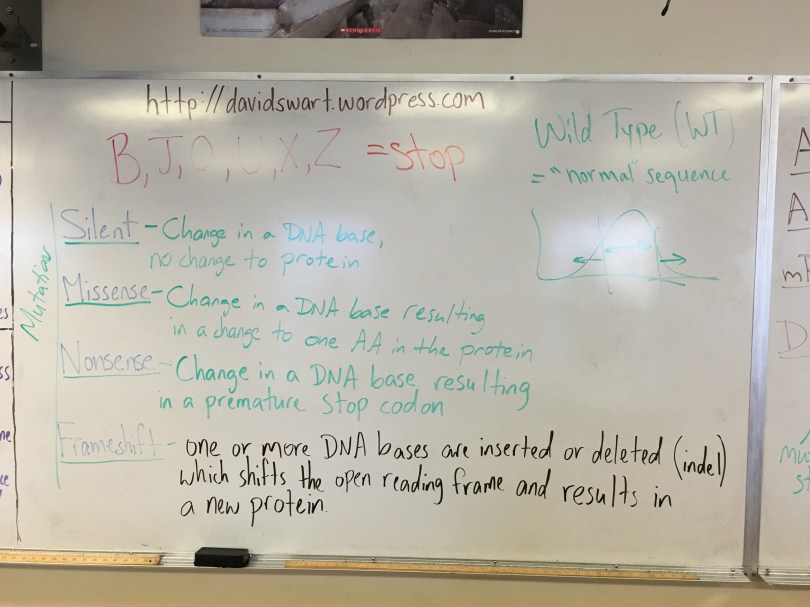 SCHOLASTIC
http://davidswart.wordpress.com
B, J, O, U, X, Z = stop
Wild Type (WT)
= "normal" sequence
Mutations
Silent - Change in a DNA base,
no change to protein
Missense - Change in a DNA base resulting
in a change to one AA in the protein
Nonsense - Change in a DNA base resulting
in a premature stop codon
Frameshift - one or more DNA bases are inserted or deleted (indel)
which shifts the open reading frame and results in
a new protein.